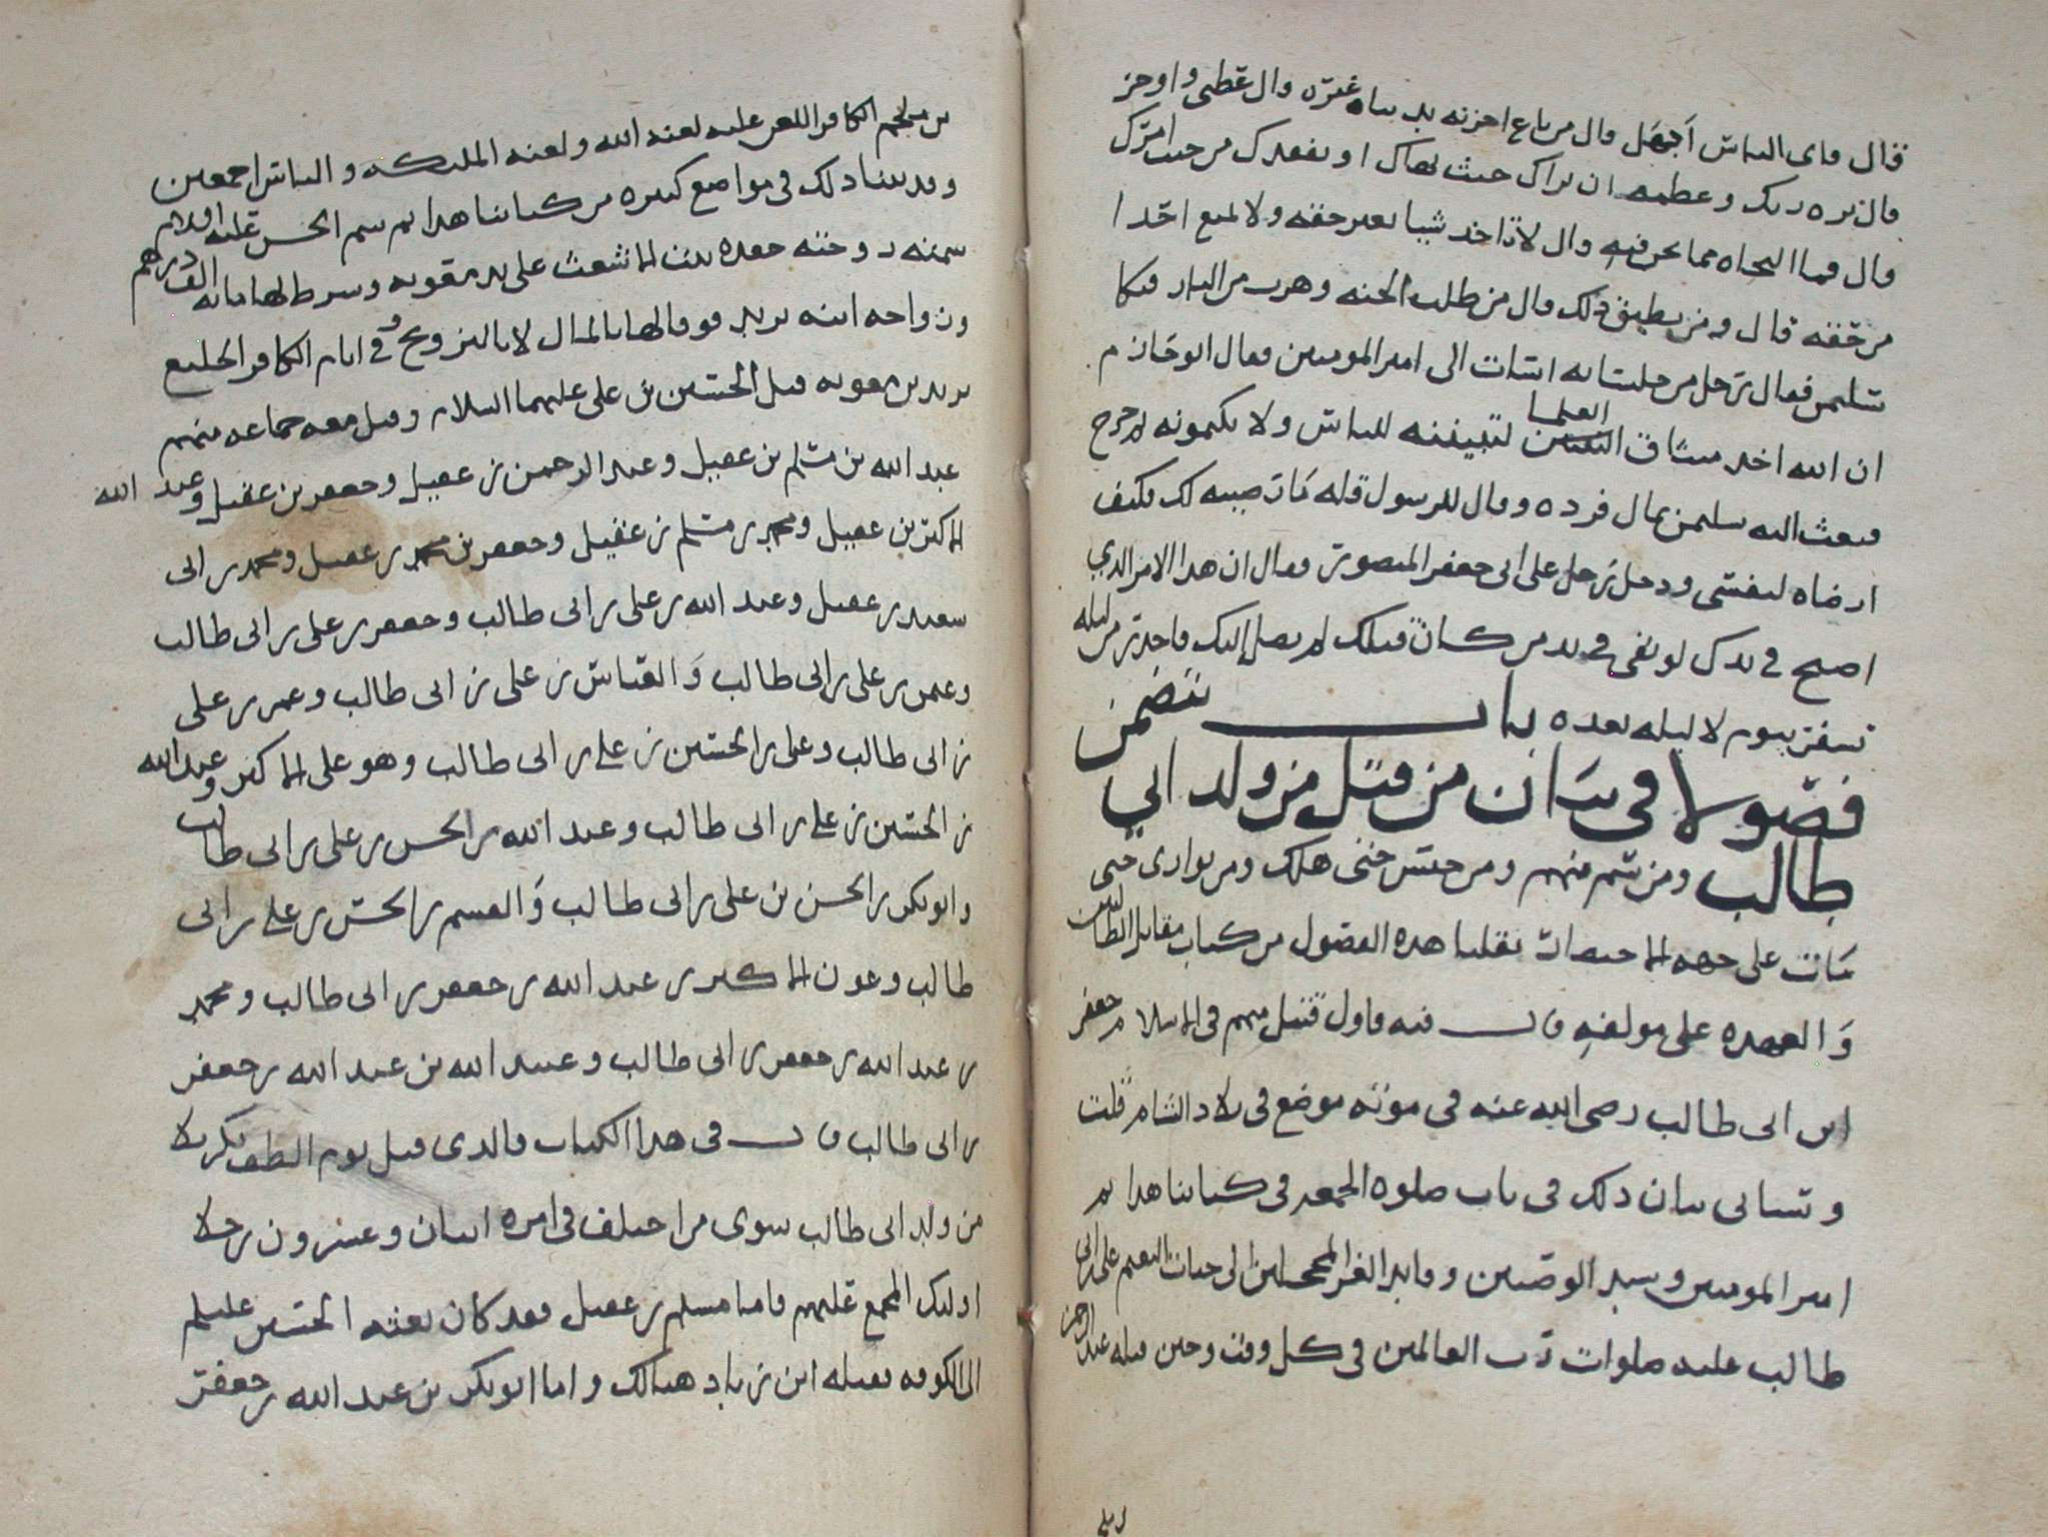 قال فاى الناس اجهل قال من باع اخرته بدنيا غيره قال عظنى واوجز
قال نزه ربك وعظمه ان يراك حيث نهاك او يفقدك من حيث امرك
قال فما النجاه مما نحن فيه قال لا تاخذ شيا بغير حقه ولا تمنع احدا
من حقه قال ومن يطيق ذلك قال من طلب الجنه وهرب من النار فبكا
سليمن فقال رجل من جلسايه اسات الى امير المومنين فقال ابو حازم
ان الله اخذ ميثاق العلما لتبيننه للناس ولا يكتمونه ثم خرج
فبعث اليه سليمن بمال فرده وقال للرسول قل له مات صيبه لك فكيف
ارضاه لنفسى ودخل رجل على ابى جعفر المنصور فقال ان هذا الامر الذي
اصبح في يدك لو بقى في يد من كان قبلك لم يصل اليك فاحذر من ليله
تسفر بيوم لا ليله بعده باب يتضمن
فصولا فى بيان من قتل من ولد ابي
طالب ومن سم منهم ومن حبس حتى هلك ومن توارى حتى
مات على جهه الاختصار نقلنا هذه الفصول من كتاب مقاتل الطالبين
والعهده على مولفه قال فيه فاول قتيل منهم فى الاسلام جعفر
ابن ابى طالب رضى الله عنه فى موته موضع فى بلاد الشام قلت
وسياتى بيان ذلك فى باب صلوه الجمعه فى كتابنا هذا ثم
امير المومنين وسيد الوصيين وقايد الغر المحجلين الى جنات النعيم على بن ابى
طالب عليه صلوات رب العالمين فى كل وقت وحين قتله عبد الرحمن
بن ملجم الكافر اللعين عليه لعنه الله ولعنه الملىكه والناس اجمعين
وقد بينا ذلك فى مواضع كثيره من كتابنا هذا ثم سم الحسن عليه السلام
سمته زوجته جعده بنت الاشعث على يد معويه وشرط لها مايه الف درهم
وزواجه ابنه يزيد فوفا لها بالمال لا بالتزويج وفي ايام الكافر الخليع
يزيد بن معويه قتل الحسين بن على عليهما السلام وقتل معه جماعه منهم
عبد الله بن مسلم بن عقيل وعبد الرحمن بن عقيل وجعفر بن عقيل وعبد الله
الاكبر بن عقيل ومحمد بن مسلم بن عقيل وجعفر بن محمد بن عقيل ومحمد بن ابى
سعيد بن عقيل وعبد الله بن على بن ابى طالب وجعفر بن على بن ابى طالب
وعثمن بن على بن ابى طالب والعباس بن على بن ابى طالب وعمر بن على
بن ابى طالب وعلى بن الحسين بن على بن ابى طالب وهو على الاكبر وعبد الله
بن الحسين بن على بن ابى طالب وعبد الله بن الحسن بن على بن ابى طالب
وابو بكر بن الحسن بن على بن ابى طالب والقسم بن الحسن بن على بن ابى
طالب وعون الاكبر بن عبد الله بن جعفر بن ابى طالب ومحمد
بن عبد الله بن جعفر بن ابى طالب وعبيد الله بن عبد الله بن جعفر
بن ابى طالب قال فى هذا الكتاب فالذى قتل يوم الطف بكربلا
من ولد ابى طالب سوى من اختلف فى امره اثنان وعشرون رجلا
اوليك المجمع عليهم فاما مسلم بن عقيل فقد كان بعثه الحسين عليلم
الى الكوفه فقتله ابن زياد هنالك واما ابو بكر بن عبد الله بن جعفر